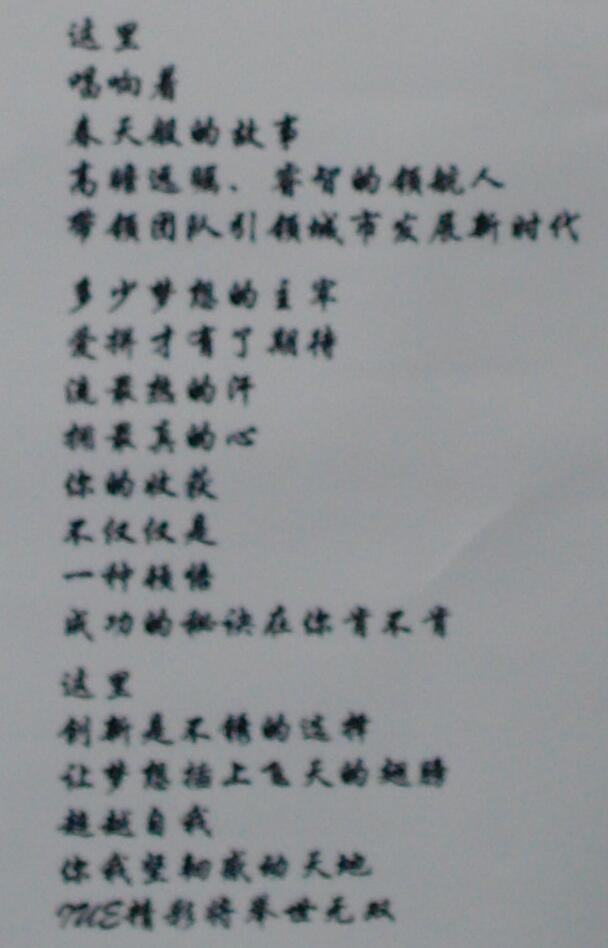 这里
唱响着
春天般的故事
高瞻远瞩、睿智的领航人
带领团队引领城市发展新时代
多少梦想的主牢
爱拼才有了期待
流最热的汗
拥最真的心
你的收获
不仅仅是
一种领悟
成功的秘诀在你肯不肯
这里
创新是不锈的选择
让梦想插上飞天的翅膀
超越自我
你我坚韧感动天地
精彩将举世无双